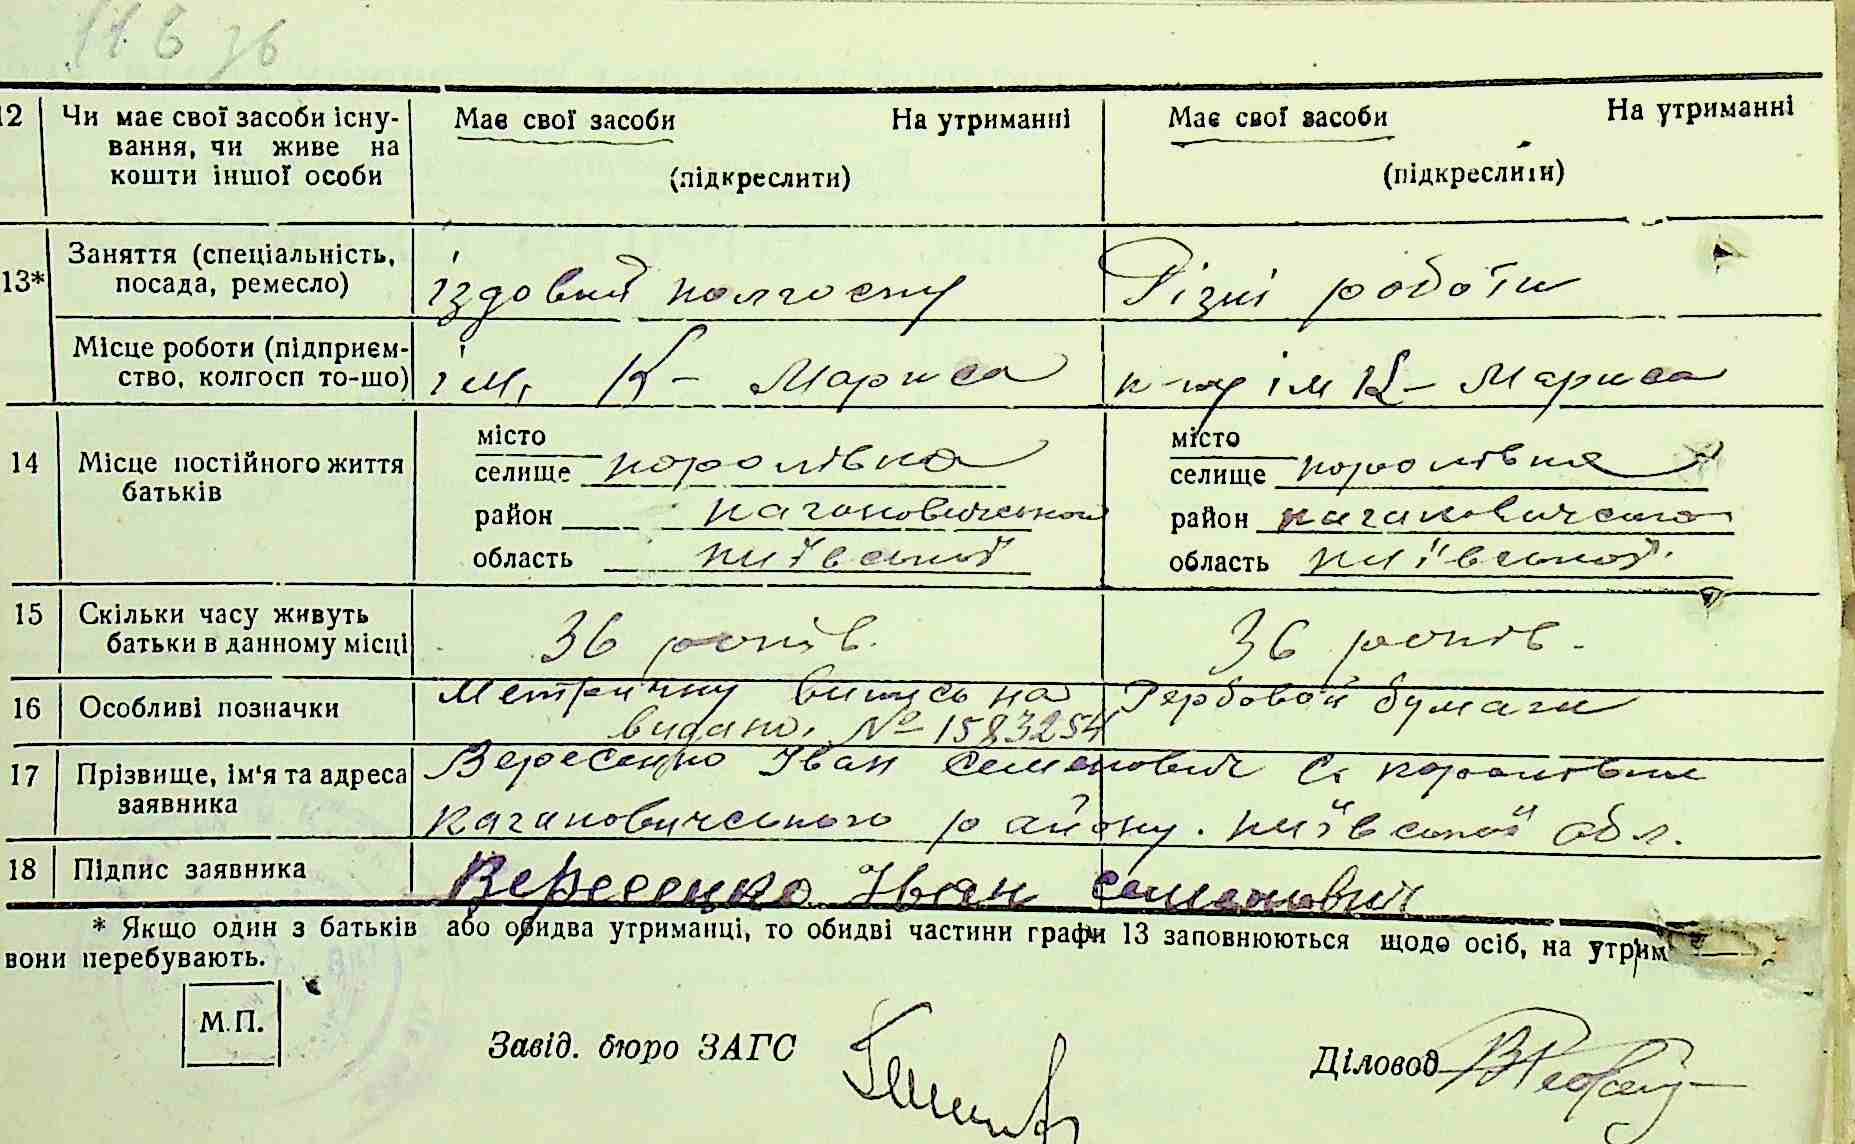 12 Чи має свої засоби існу- Має свої засоби На утриманні Має свої засоби На утриманні
вання, чи живе на
кошти іншої особи (підкреслити) (підкреслити)
13* Заняття (спеціальність, посада, ремесло) їздовий колгоспу Різні роботи
Місце роботи (підприєм-
ство, колгосп то-що) ім. К- Маркса к-пу ім К- Маркса
14 Місце постійного життя
батьків
місто місто
селище королівка селище королівка
район кагановичської район кагановичського
область київської область київської
15 Скільки часу живуть
батьки в данному місці 36 років. 36 років.
16 Особливі позначки Метричну випись на Гербовой бумаги
видано. № 1583254
17 Прізвище, ім'я та адреса Вересенко Іван Семенович с. королівки
заявника кагановичського району. київської обл.
18 Підпис заявника Вересенко Іван семенович
* Якщо один з батьків або обидва утриманці, то обидві частини графи 13 заповнюються щодо осіб, на утрим
вони перебувають.
М.П.
Завід. бюро ЗАГС
Діловод